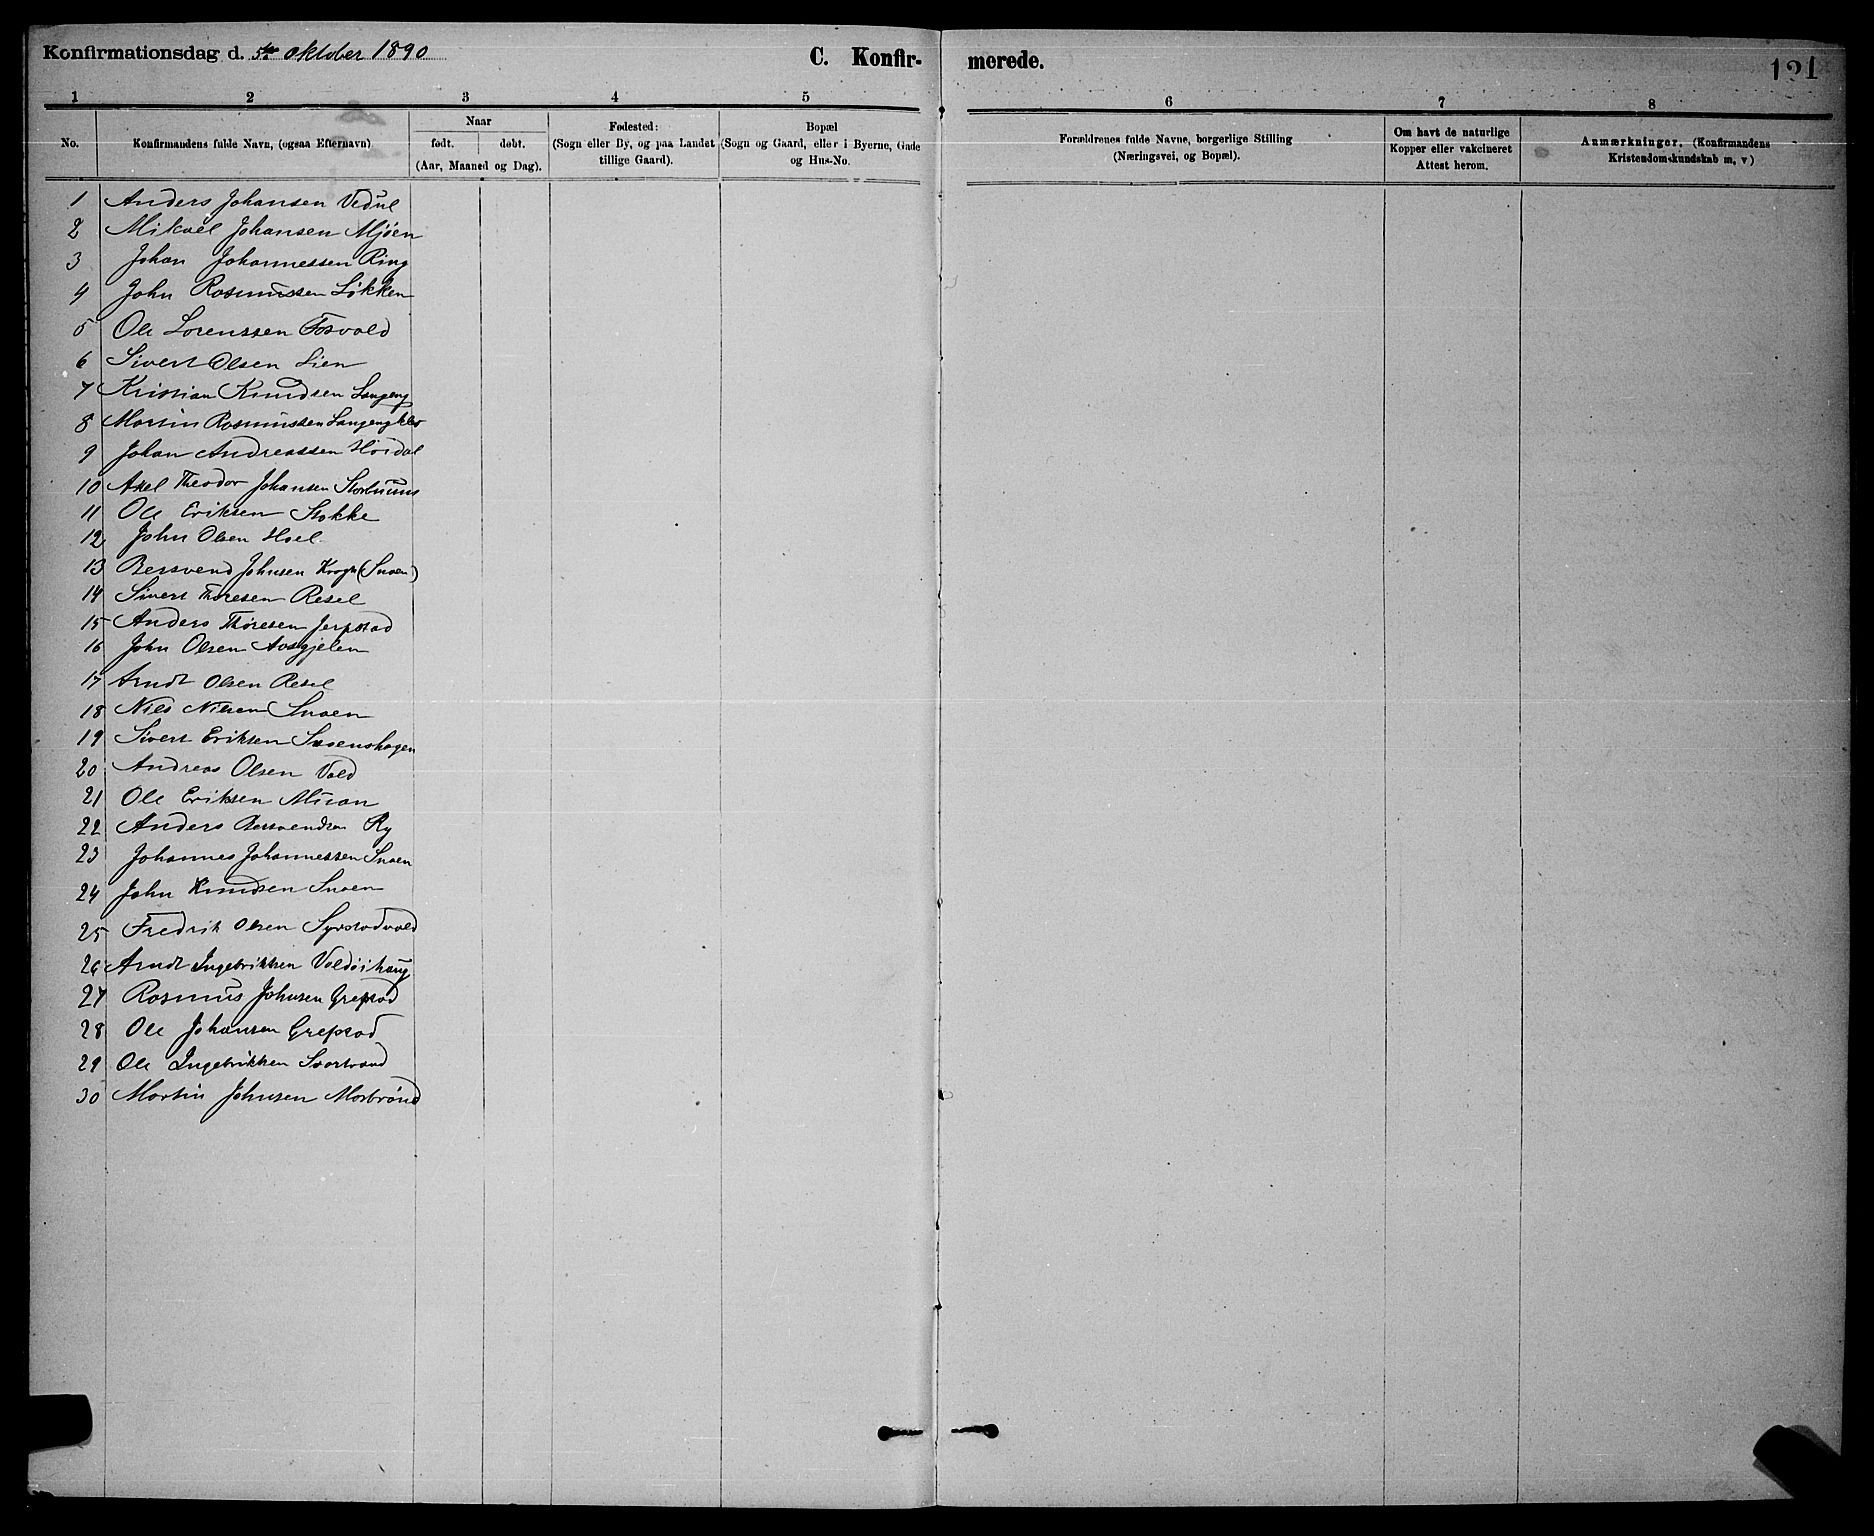 Konfirmationsdag d. 5te Oktober 1890
C. Konfirmerede.
121
1 2 3 4 5 6 7 8
No.
Konfirmandens fulde Navn, (ogsaa Efternavn)
Naar
født. døbt.
(Aar, Maaned og Dag).
Fødested:
(Sogn eller By, og paa Landet
tillige Gaard).
Bopæl
(Sogn og Gaard, eller i Byerne, Gade
og Hus-No.
Forældrenes fulde Navne, borgerlige Stilling
(Næringsvei, og Bopæl).
Om havt de naturlige
Kopper eller vakcineret
Attest herom.
Anmærkninger. (Konfirmandens
Kristendomskundskab m, v)
1 Anders Johansen Vedul
2 Mikael Johansen Mjøen
3 Johan Johannessen Ring
4 John Rasmussen Løkken
5 Ole Lorenssen Fosvold
6 Sivert Olsen Lien
7 Kristian Knudsen Langeng
8 Martin Rasmussen
9 Johan Andreassen Hoidal
10 Axel Theodor Johansen
11 Ole Eriksen Stokke
12 John Olsen Hoel
13 Bersvend Johnsen Krogh (Snoen)
14 Sivert Thoresen Resel
15 Anders Thøresen Jerpstad
16 John Olsen Aasgjelen
17 Arndt Olsen Resel
18 Nils Nilsen Snoen
19 Sivert Eriksen
20 Andreas Olsen Vold
21 Ole Eriksen Muan
22 Anders Bersvendsen Ry
23 Johannes Johannessen Snoen
24 John Knudsen Snoen
25 Fredrik Olsen Syrstadvold
26 Arndt Ingebriktsen
27 Rasmus Johnsen Grefstad
28 Ole Johansen Grefstad
29 Ole Ingebriktsen Svartvand
30 Martin Johnsen